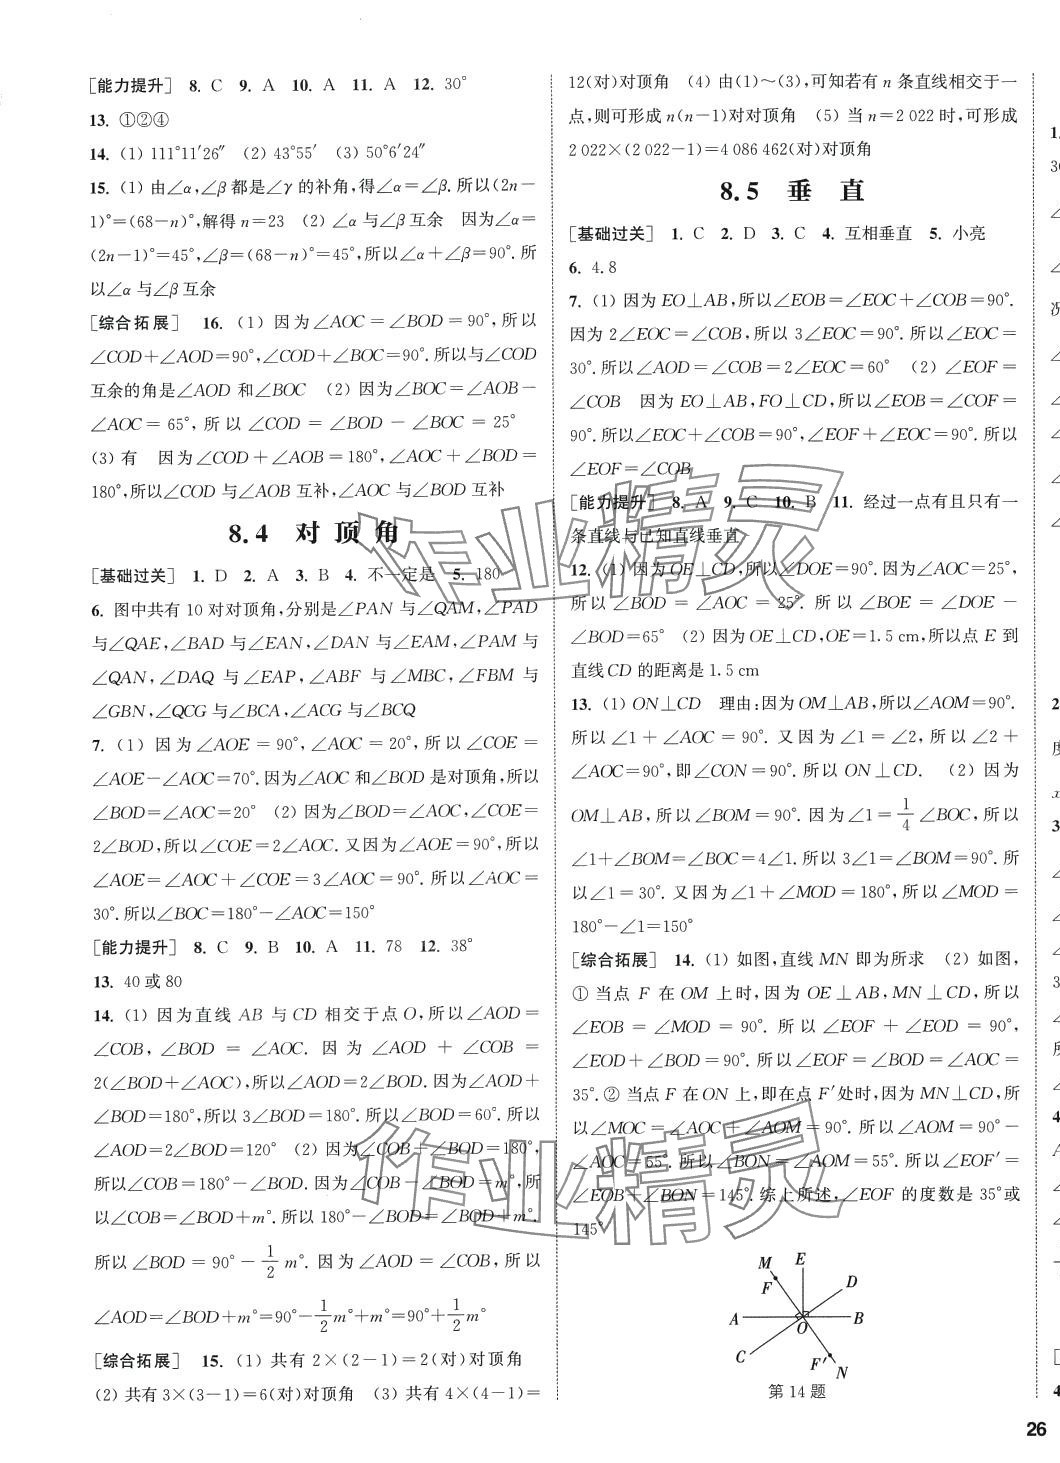 [能力提升] 8. C 9. A 10. A 11. A 12. 30°
13. ①②④
14. (1) 111°11′26″ (2) 43°55′ (3) 50°6′24″
15. (1) 由∠α,∠β都是∠γ的补角,得∠α=∠β.所以(2n-
1)°=(68-n)°,解得n=23 (2) ∠α与∠β互余 因为∠α=
(2n-1)°=45°,∠β=(68-n)°=45°,所以∠α+∠β=90°.所
以∠α与∠β互余
[综合拓展] 16. (1) 因为∠AOC=∠BOD=90°,所以
∠COD+∠AOD=90°,∠COD+∠BOC=90°.所以与∠COD
互余的角是∠AOD和∠BOC (2) 因为∠BOC=∠AOB-
∠AOC=65°,所以∠COD=∠BOD-∠BOC=25°
(3) 有 因为∠COD+∠AOB=180°,∠AOC+∠BOD=
180°,所以∠COD与∠AOB互补,∠AOC与∠BOD互补
8.4 对顶角
[基础过关] 1. D 2. A 3. B 4. 不一定是 5. 180
6. 图中共有10对对顶角,分别是∠PAN与∠QAM,∠PAD
与∠QAE,∠BAD与∠EAN,∠DAN与∠EAM,∠PAM与
∠QAN,∠DAQ与∠EAP,∠ABF与∠MBC,∠FBM与
∠GBN,∠QCG与∠BCA,∠ACG与∠BCQ
7. (1) 因为∠AOE=90°,∠AOC=20°,所以∠COE=
∠AOE-∠AOC=70°.因为∠AOC和∠BOD是对顶角,所以
∠BOD=∠AOC=20° (2) 因为∠BOD=∠AOC,∠COE=
2∠BOD,所以∠COE=2∠AOC.又因为∠AOE=90°,所以
∠AOE=∠AOC+∠COE=3∠AOC=90°.所以∠AOC=
30°.所以∠BOC=180°-∠AOC=150°
[能力提升] 8. C 9. B 10. A 11. 78 12. 38°
13. 40或80
14. (1) 因为直线AB与CD相交于点O,所以∠AOD=
∠COB,∠BOD=∠AOC.因为∠AOD+∠COB=
2(∠BOD+∠AOC),所以∠AOD=2∠BOD.因为∠AOD+
∠BOD=180°,所以3∠BOD=180°.所以∠BOD=60°.所以
∠AOD=2∠BOD=120° (2) 因为∠COB+∠BOD=180°,
所以∠COB=180°-∠BOD.因为∠COB-∠BOD=m°,所
以∠COB=∠BOD+m°.所以180°-∠BOD=∠BOD+m°.
所以∠BOD=90°-1/2m°.因为∠AOD=∠COB,所以
∠AOD=∠BOD+m°=90°-1/2m°+m°=90°+1/2m°
[综合拓展] 15. (1) 共有2×(2-1)=2(对)对顶角
(2) 共有3×(3-1)=6(对)对顶角 (3) 共有4×(4-1)=
12(对)对顶角 (4) 由(1)~(3),可知若有n条直线相交于一
点,则可形成n(n-1)对对顶角 (5) 当n=2 022时,可形成
2 022×(2 022-1)=4 086 462(对)对顶角
8.5 垂直
[基础过关] 1. C 2. D 3. C 4. 互相垂直 5. 小亮
6. 4.8
7. (1) 因为EO⊥AB,所以∠EOB=∠EOC+∠COB=90°.
因为2∠EOC=∠COB,所以3∠EOC=90°.所以∠EOC=
30°.所以∠AOD=∠COB=2∠EOC=60° (2) ∠EOF=
∠COB 因为EO⊥AB,FO⊥CD,所以∠EOB=∠COF=
90°.所以∠EOC+∠COB=90°,∠EOF+∠EOC=90°.所以
∠EOF=∠COB
[能力提升] 8. A 9. C 10. B 11. 经过一点有且只有一
条直线与已知直线垂直
12. (1) 因为OE⊥CD,所以∠DOE=90°.因为∠AOC=25°,
所以∠BOD=∠AOC=25°.所以∠BOE=∠DOE-
∠BOD=65° (2) 因为OE⊥CD,OE=1.5 cm,所以点E到
直线CD的距离是1.5 cm
13. (1) ON⊥CD 理由:因为OM⊥AB,所以∠AOM=90°.
所以∠1+∠AOC=90°.又因为∠1=∠2,所以∠2+
∠AOC=90°,即∠CON=90°.所以ON⊥CD. (2) 因为
OM⊥AB,所以∠BOM=90°.因为∠1=1/4∠BOC,所以
∠1+∠BOM=∠BOC=4∠1.所以3∠1=∠BOM=90°.所
以∠1=30°.又因为∠1+∠MOD=180°,所以∠MOD=
180°-∠1=150°
[综合拓展] 14. (1) 如图,直线MN即为所求 (2) 如图,
① 当点F在OM上时,因为OE⊥AB,MN⊥CD,所以
∠EOB=∠MOD=90°.所以∠EOF+∠EOD=90°,
∠EOD+∠BOD=90°.所以∠EOF=∠BOD=∠AOC=
35°.② 当点F在ON上,即在点F′处时,因为MN⊥CD,所
以∠MOC=∠AOC+∠AOM=90°.所以∠AOM=90°-
∠AOC=55°.所以∠BON=∠AOM=55°.所以∠EOF′=
∠EOB+∠BON=145°.综上所述,∠EOF的度数是35°或
145°
M E
F D
A O B
C F′ N
第14题
26
作业精灵
作业精灵